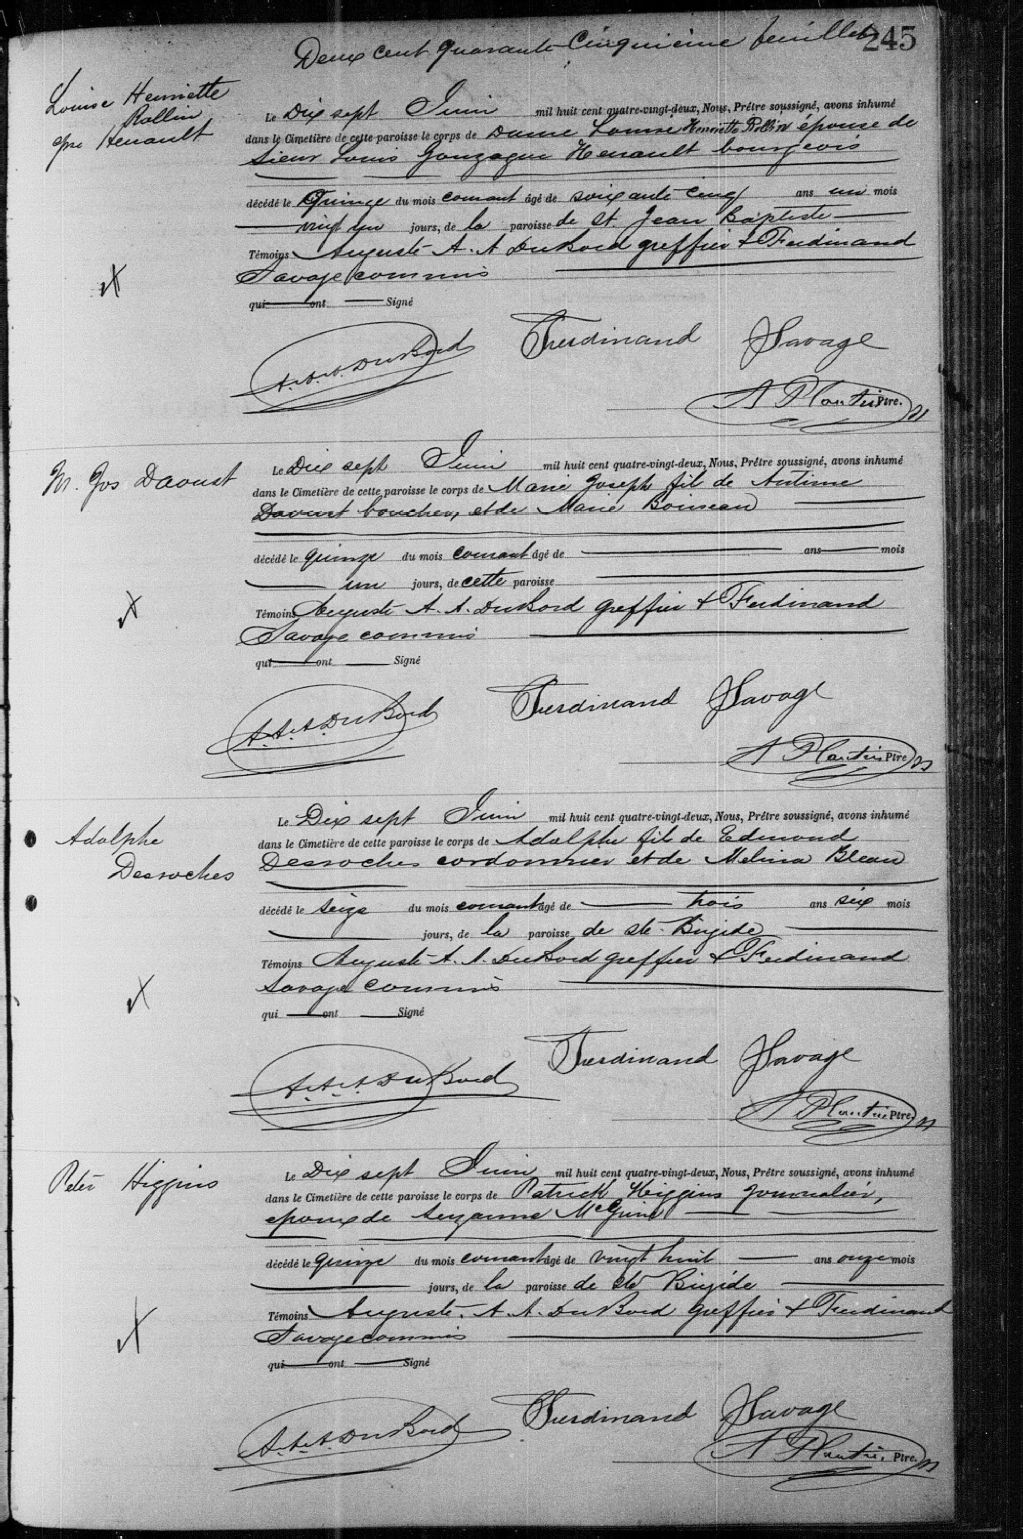 Deux cent quarante-cinquième feuillet 245
Louise Henriette
Rollin
epse Henault
Le Dix sept Juin mil huit cent quatre-vingt-deux, Nous, Prêtre soussigné, avons inhumé
dans le Cimetière de cette paroisse le corps de Dame Louise Henriette Rollin épouse de
Sieur Louis Gonzague Henault bourgeois
décédé le Quinze du mois courant âgé de soixante cinq ans un mois
vingt un jours, de la paroisse de St Jean Baptiste
Témoins Auguste A. A DuBord greffier & Ferdinand
Savage commis
qui ont Signé
A. A. A. DuBord Ferdinand Savage
A Plantin Ptre.
M. Jos Daoust
Le Dix sept Juin mil huit cent quatre-vingt-deux, Nous, Prêtre soussigné, avons inhumé
dans le Cimetière de cette paroisse le corps de Marie Joseph fil de Antime
Daoust boucher, et de Marie Boineau
décédé le quinze du mois courant âgé de ans mois
un jours, de cette paroisse
Témoins Auguste A. A. DuBord greffier & Ferdinand
Savage commis
qui ont Signé
A. A. A. DuBord Ferdinand Savage
A Plantin Ptre
Adolphe
Desroches
Le Dix sept Juin mil huit cent quatre-vingt-deux, Nous, Prêtre soussigné, avons inhumé
dans le Cimetière de cette paroisse le corps de Adolphe fil de Edmond
Desroches cordonnier et de Melina Bleau
décédé le seize du mois courant âgé de trois ans six mois
jours, de la paroisse de Ste Brigide
Témoins Auguste A. A. DuBord greffier & Ferdinand
Savage commis
qui ont Signé
A. A. A. DuBord Ferdinand Savage
A Plantin Ptre.
Peter Higgins
Le Dix sept Juin mil huit cent quatre-vingt-deux, Nous, Prêtre soussigné, avons inhumé
dans le Cimetière de cette paroisse le corps de Patrick Higgins journalier,
epoux de Suzanne
décédé le quinze du mois courant âgé de vingt huit ans onze mois
jours, de la paroisse de Ste Brigide
Témoins Auguste A. A. DuBord greffier & Ferdinand
Savage commis
qui ont Signé
A. A. A. DuBord Ferdinand Savage
A Plantin Ptre.